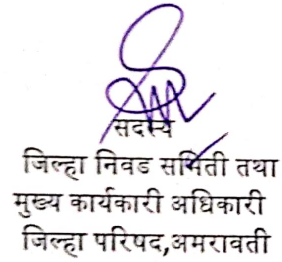 सदस्य
जिल्हा निवड समिती तथा
मुख्य कार्यकारी अधिकारी
जिल्हा परिषद,अमरावती